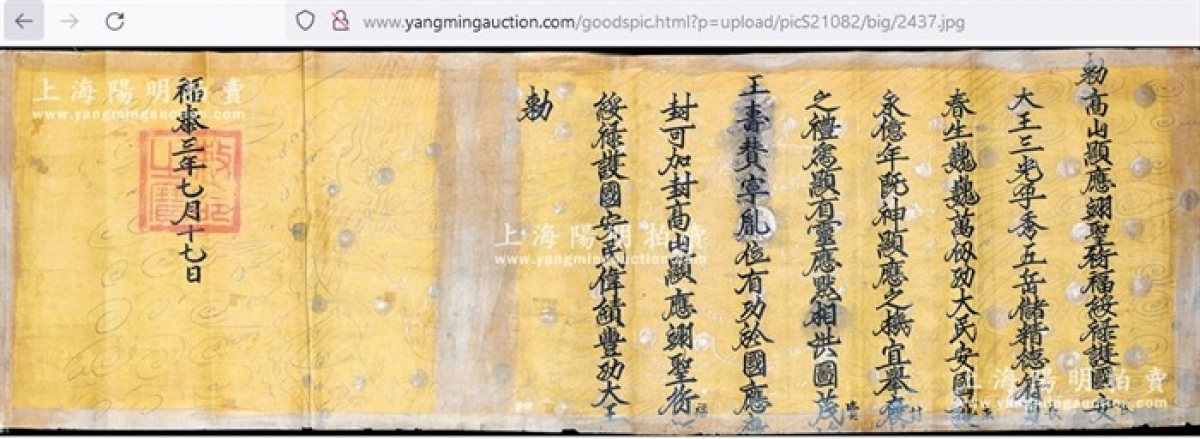 www.yangmingauction.com/goodspic.html?p=upload/picS21082/big/2437.jpg
敕高山顯應翊聖衍福綏祿護國安
大王三光孕秀五岳儲精德
春生巍巍萬仭功大民安國
永億年旣神顯應之稱宜舉褒
之禮爲顯有靈應默相洪圖茂
王壽贊寧胤位有功於國應
封可加封高山顯應翊聖衍
綏祿護國安民偉績豐功大王
敕
福泰三年七月十七日
敕命之寶
上海陽明拍賣
www.yangmingauction.com
上海陽明拍賣
www.yangmingauction.com
上海陽明拍賣
www.yangmingauction.com